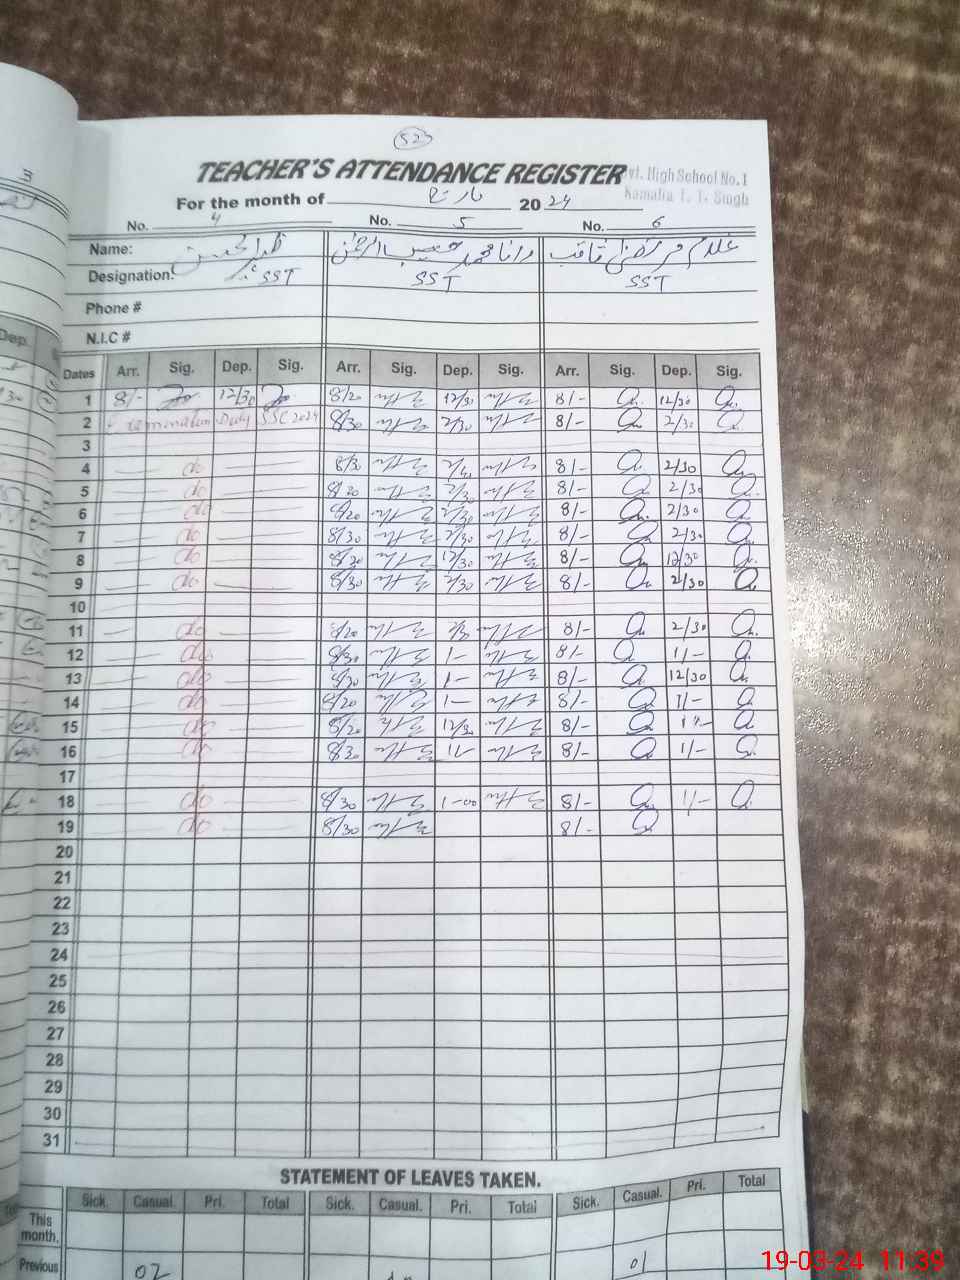 52
TEACHER'S ATTENDANCE REGISTER
vt. High School No.1
Kamalia T. T. Singh
For the month of مارچ 2024
No. 4 No. 5 No. 6
Name: رانا محمد حبیب الرحمٰن غلام مرتضیٰ ثاقب
Designation: SST SST SST
Phone #
N.I.C #
Dates Arr. Sig. Dep. Sig. Arr. Sig. Dep. Sig. Arr. Sig. Dep. Sig.
1 8/- 12/30 8/20 12/30 8/- 12/30
2 Examination Duty SSC 2024 8/30 2/30 8/- 2/30
3
4 do 8/30 8/- 2/30
5 do 8/20 2/30 8/- 2/30
6 do 8/20 2/30 8/- 2/30
7 do 8/30 2/30 8/- 2/30
8 do 8/30 12/30 8/- 12/30
9 do 8/30 2/30 8/- 2/30
10
11 do 8/20 8/- 2/30
12 do 8/30 1- 8/- 1/-
13 do 8/30 1- 8/- 12/30
14 do 8/20 1- 8/- 1/-
15 do 8/20 12/30 8/-
16 do 8/30 8/- 1/-
17
18 do 8/30 1-00 8/- 1/-
19 do 8/30 8/-
20
21
22
23
24
25
26
27
28
29
30
31
STATEMENT OF LEAVES TAKEN.
Sick. Casual. Pri. Total Sick. Casual. Pri. Total Sick. Casual. Pri. Total
This month.
Previous 02 01
19-03-24 11:39